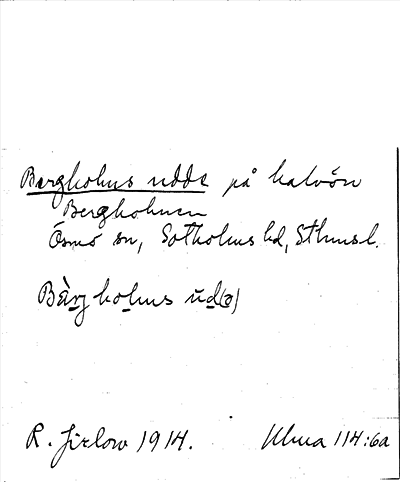 Bergholms udde på halvön
Bergholmen
Ösmo sn, Sotholms hd, Sthmsl.
Bàrjholms ud(ə)
R. Jirlow 1914. Ulma 114:6a